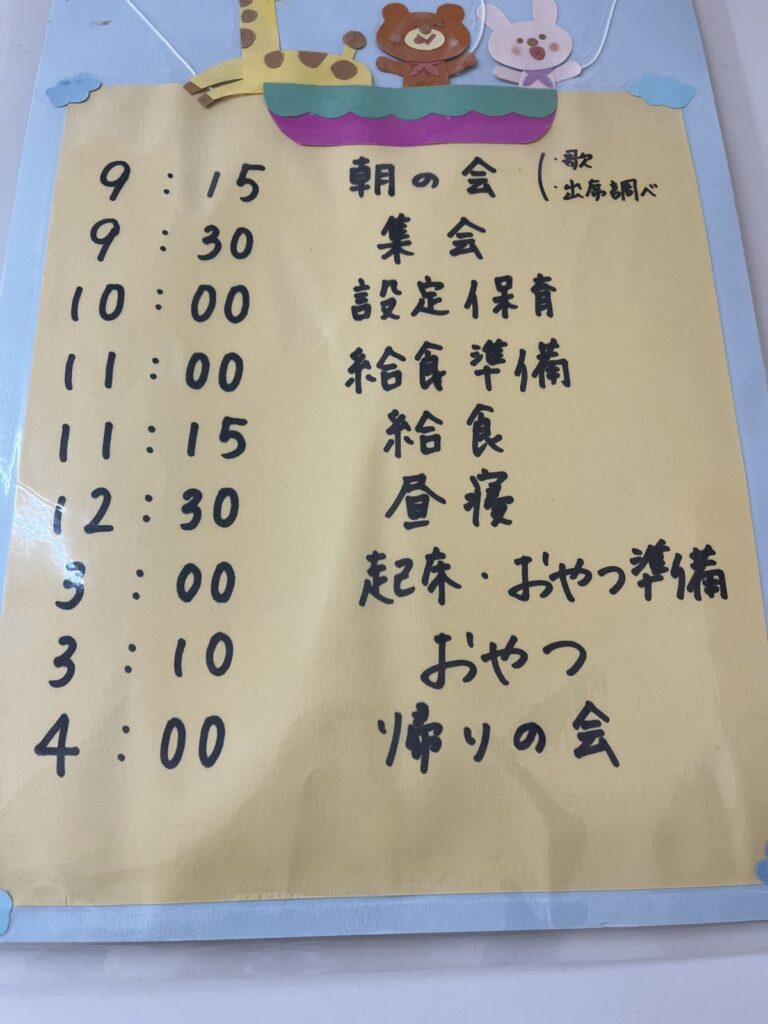 9:15 朝の会 (・歌
・出席調べ
9:30 集会
10:00 設定保育
11:00 給食準備
11:15 給食
12:30 昼寝
3:00 起床・おやつ準備
3:10 おやつ
4:00 帰りの会